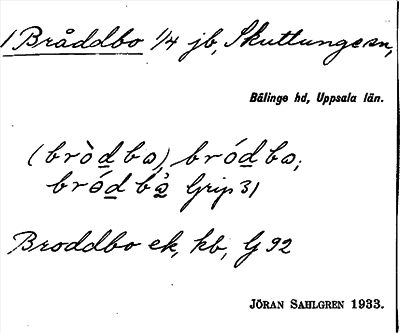 1 Bråddbo 1/4 jb, Skuttunge sn,
Bälinge hd, Uppsala län.
(bròdbo), bródbo,
bródbo Grip 31
Broddbo ek, kb, G 92
JÖRAN SAHLGREN 1933.